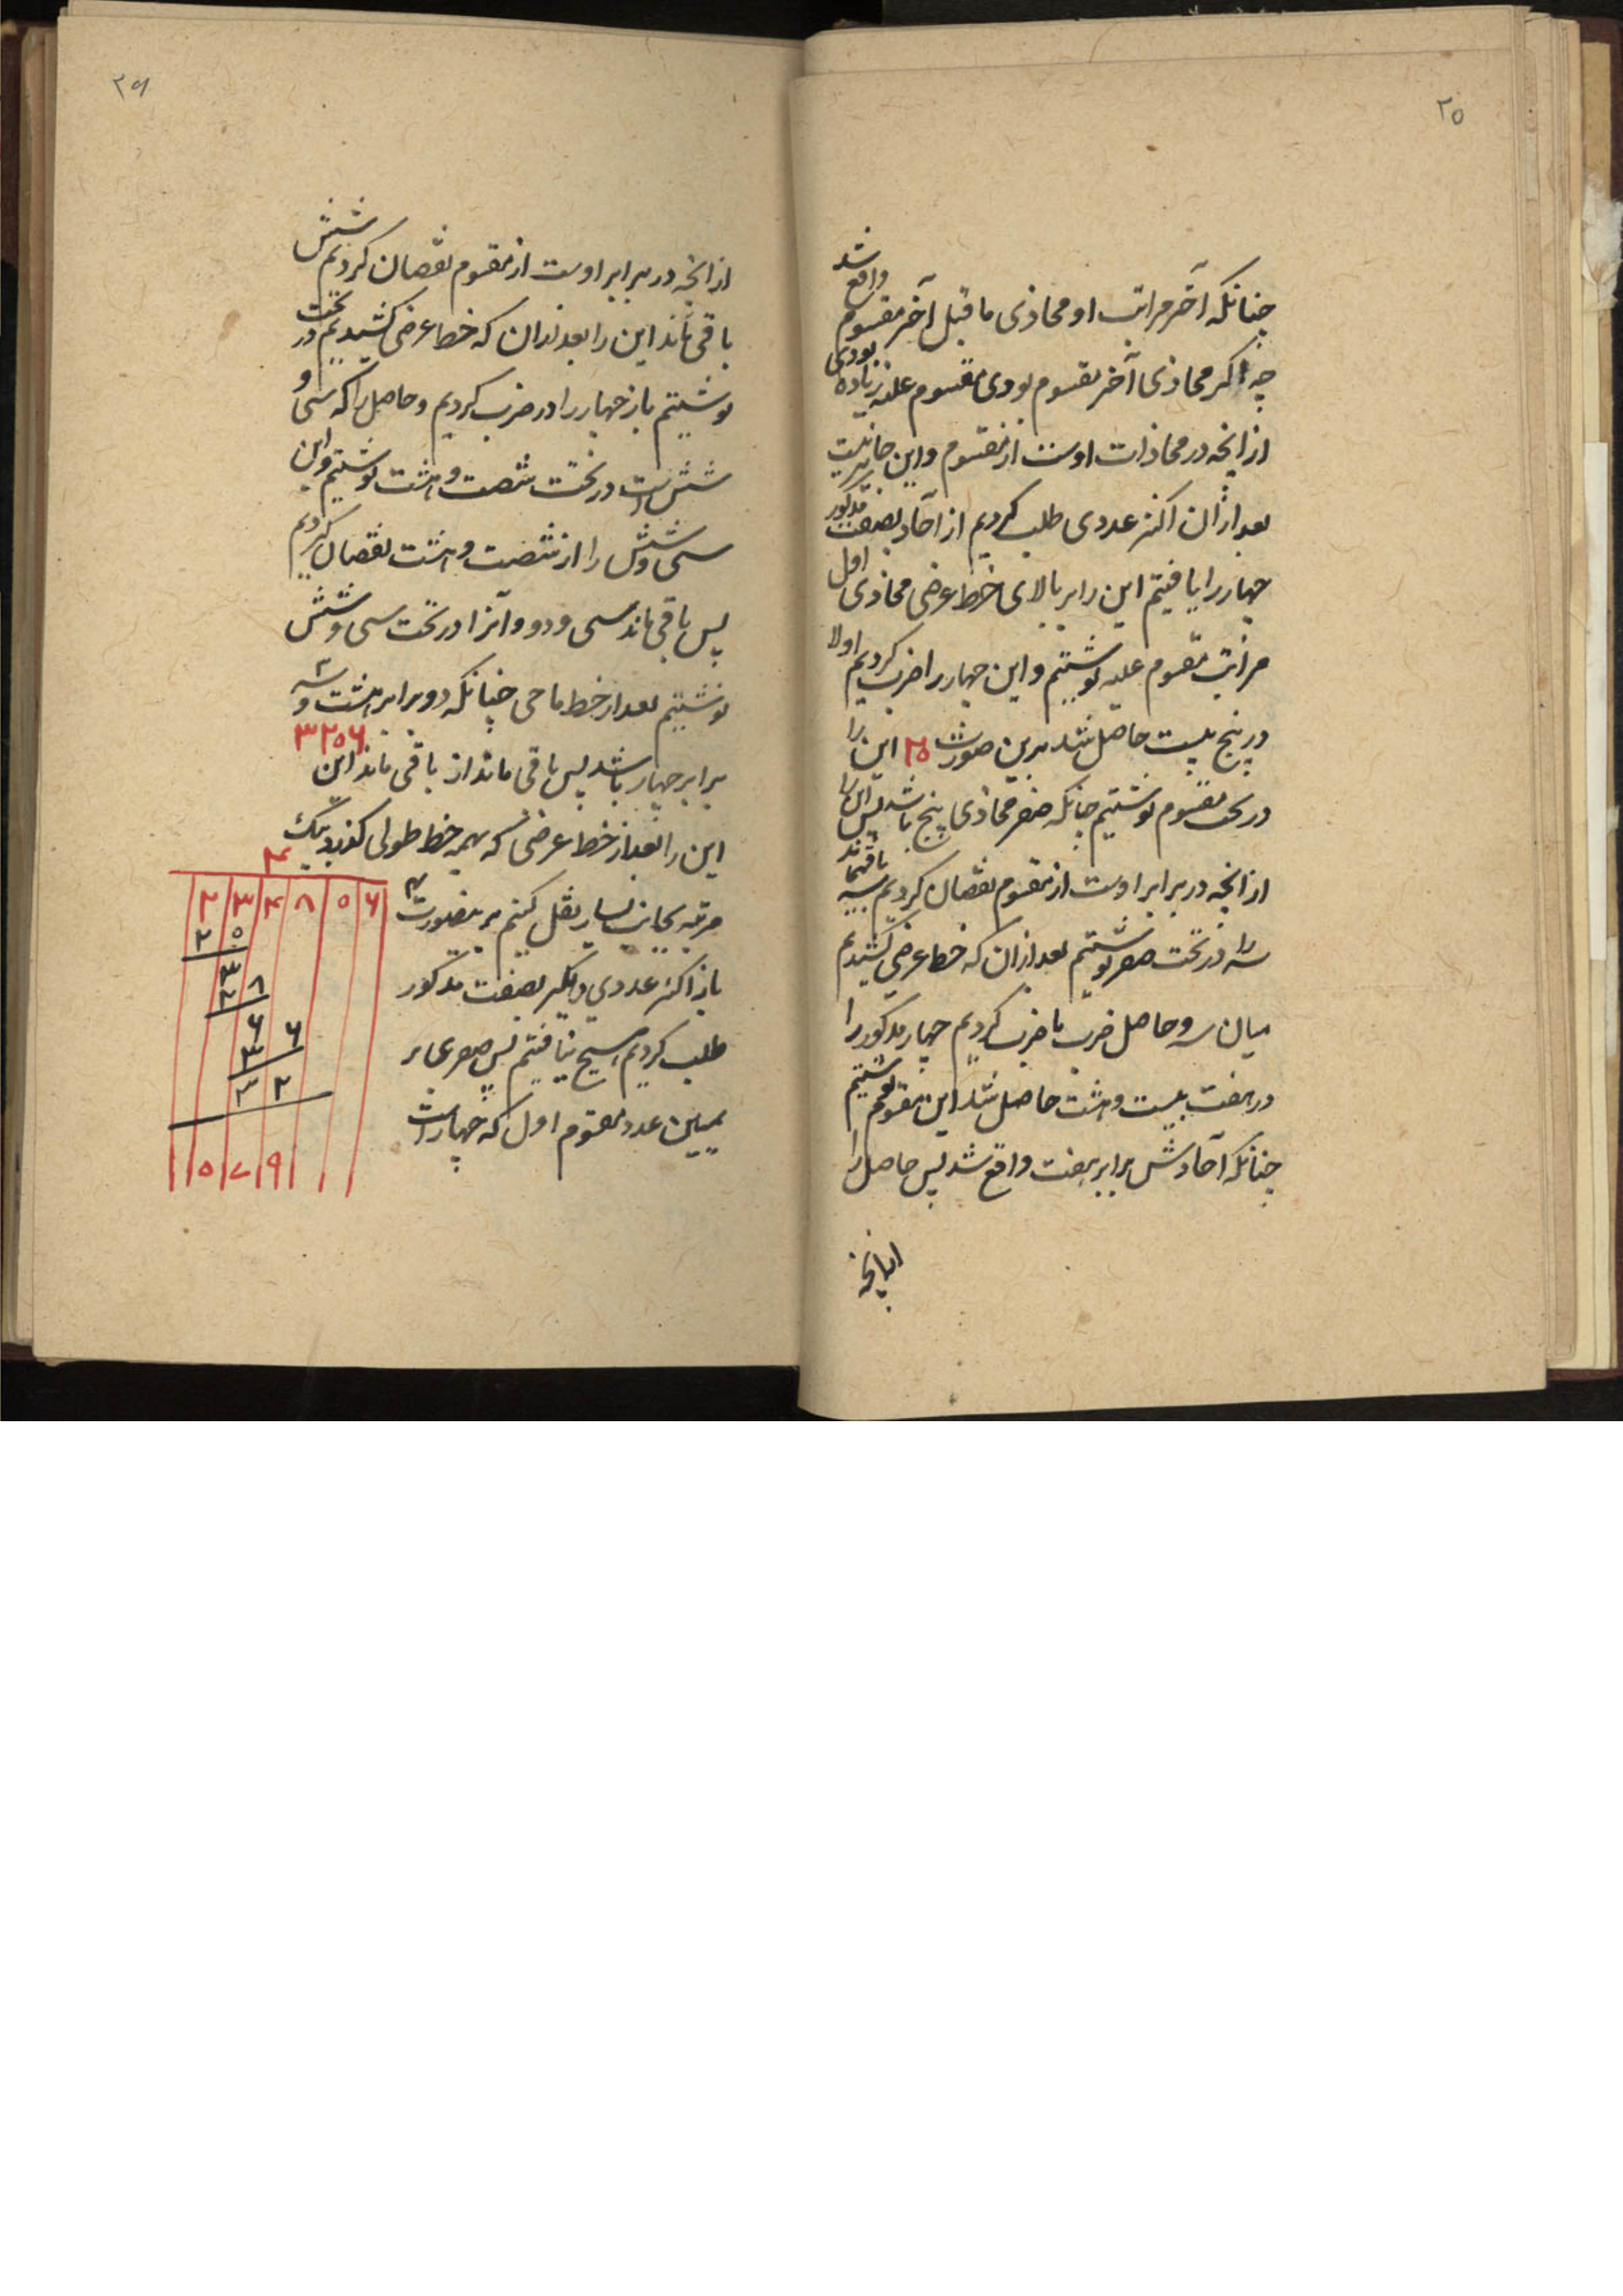 ۲۵
چنانکه آخر مراتب او محاذی ما قبل آخر مقسوم واقع شد
چه اگر محاذی آخر مقسوم بودی مقسوم علیه زیاده بودی
از انچه در محاذات اوست از مقسوم و این جائز نیست
بعد ازان اکثر عددی طلب کردیم از آحاد بصفت مذکور
چهار را یافتیم این را بر بالای خط عرضی محاذی اول
مراتب مقسوم علیه نوشتیم و این چهار را ضرب کردیم اولا
در پنج بیست حاصل شد برین صورت ۲۰ این را
در تحت مقسوم نوشتیم چنانکه صفر محاذی پنج باشد پس این را
از انچه در برابر اوست از مقسوم نقصان کردیم سه باقیماند
سه را در تحت صفر نوشتیم بعد ازان که خط عرضی کشیدیم
میان سه و حاصل ضرب با ضرب کردیم چهار مذکور را
در هفت بیست و هشت حاصل شد این مقسوم نوشتیم
چنانکه آحادش برابر هفت واقع شد پس حاصل را
ازانچه
۲۶
از انچه در برابر اوست از مقسوم نقصان کردیم شش
باقی ماند این را بعد ازان که خط عرضی کشیدیم در تحت
نوشتیم باز چهار را در ضرب کردیم و حاصل را که سی و
شش است در تحت شصت و هشت نوشتیم و این
سی و شش را از شصت و هشت نقصان کردیم
پس باقی ماند سی و دو و آنرا در تحت سی و شش
نوشتیم بعد از خط ماحی چنانکه دو برابر هشت و سه
برابر چهار باشد پس باقی ماند از باقی ماند این ۳۲۵۶
این را بعد از خط عرضی که بهمه خط طولی گذرد بیک
مرتبه بجانب یسار نقل کنیم برینصورت
باز اکثر عددی دیگر بصفت مذکور
طلب کردیم هیچ نیافتیم پس صفری بر
یمین عدد مقسوم اول که چهار است
۴
۲ ۳ ۴ ۸ ۵ ۶
۲ ۰
۳
۲ ۸
۶ ۶
۳
۳ ۲
۵ ۷ ۹